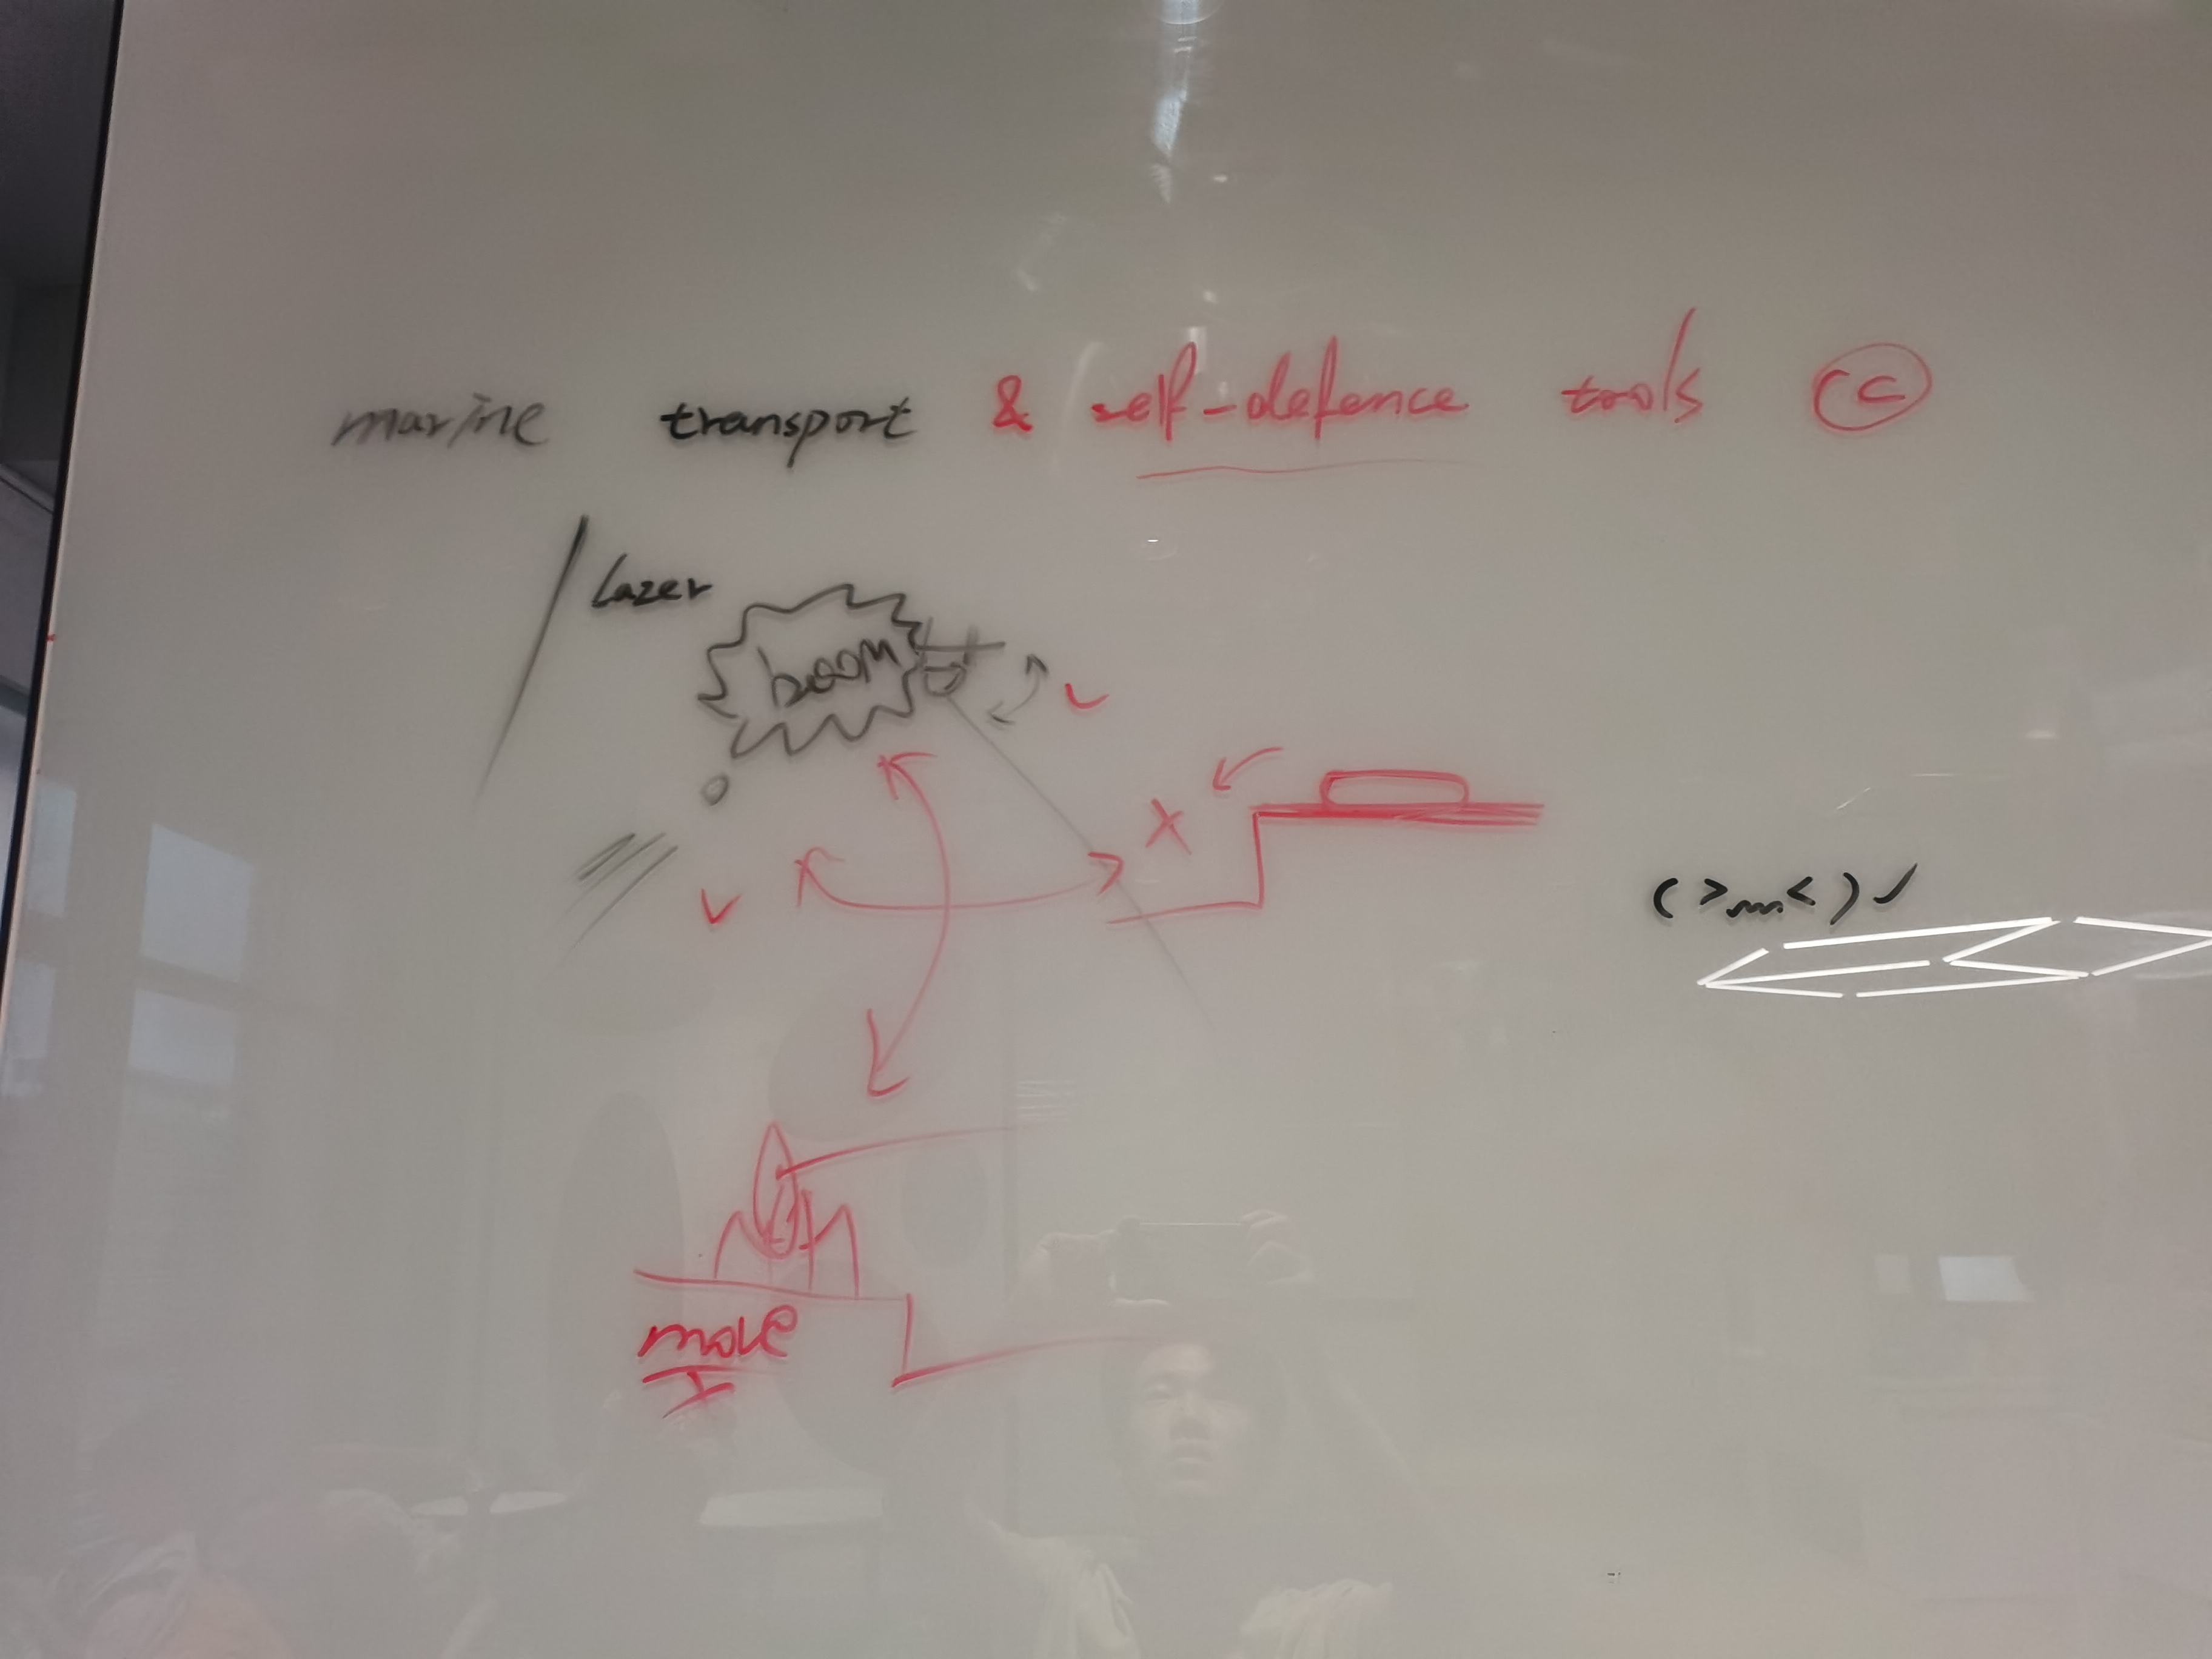 marine transport & self-defence tools C
Lazer
boom
(>m<)✓
move